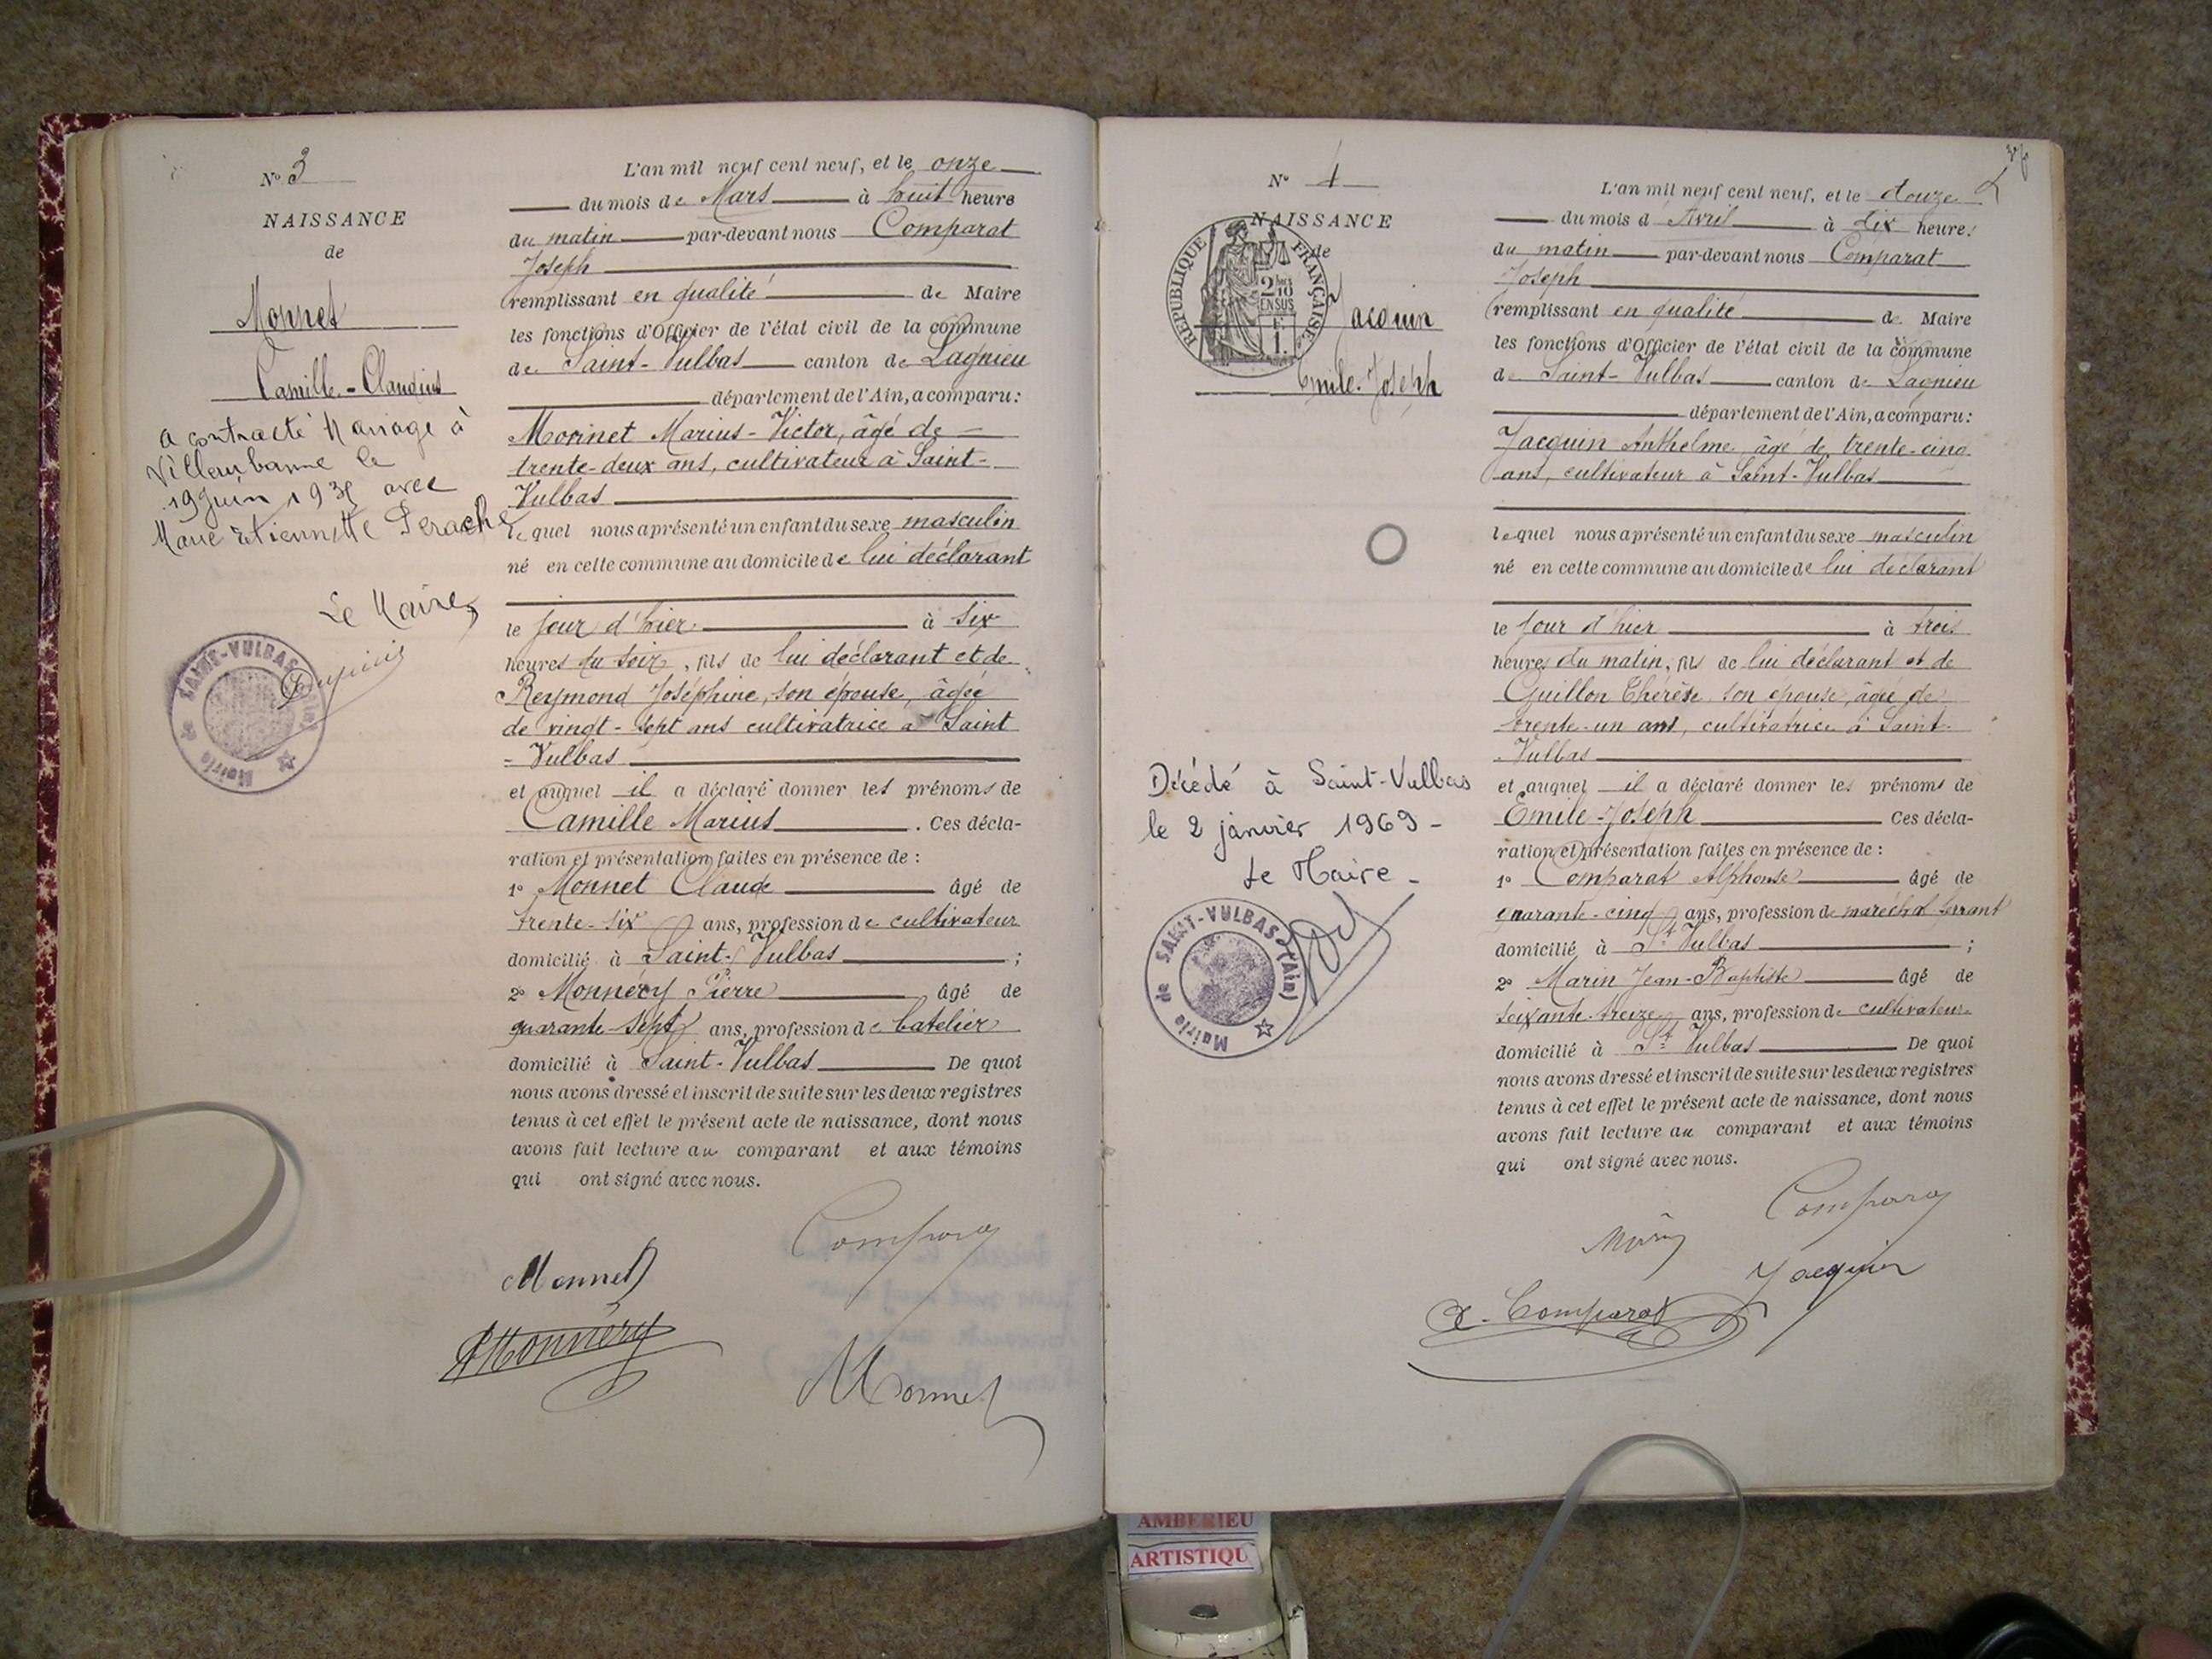 N° 3
NAISSANCE
de
Monnet
Camille-Claudius
a contracté Mariage à
Villeurbanne le
19 Juin 193 avec
Marie Etiennette Perache
Le Maire
Mairie de SAINT-VULBAS
L'an mil neuf cent neuf, et le onze
du mois de Mars à huit heure
du matin par-devant nous Comparat
Joseph
remplissant en qualité de Maire
les fonctions d'Officier de l'état civil de la commune
de Saint-Vulbas canton de Lagnieu
département de l'Ain, a comparu :
Monnet Marius-Victor, âgé de
trente-deux ans, cultivateur à Saint-
Vulbas
lequel nous a présenté un enfant du sexe masculin
né en cette commune au domicile de lui déclarant
le jour d'hier à six
heures du soir, fils de lui déclarant et de
Reymond Joséphine, son épouse, âgée
de vingt-sept ans cultivatrice à Saint
-Vulbas
et auquel il a déclaré donner les prénoms de
Camille Marius. Ces décla-
ration et présentation faites en présence de :
1° Monnet Claude âgé de
trente-six ans, profession de cultivateur
domicilié à Saint-Vulbas ;
2° Monnéry Pierre âgé de
quarante-sept ans, profession de batelier
domicilié à Saint-Vulbas De quoi
nous avons dressé et inscrit de suite sur les deux registres
tenus à cet effet le présent acte de naissance, dont nous
avons fait lecture au comparant et aux témoins
qui ont signé avec nous.
Comparat
Monnet
Monnéry
Monnet
N° 4
NAISSANCE
de
RÉPUBLIQUE FRANÇAISE
2/10 EN SUS
1 F.
Jacquin
Emile-Joseph
Décédé à Saint-Vulbas
le 2 janvier 1969 -
Le Maire -
Mairie de SAINT-VULBAS (Ain)
L'an mil neuf cent neuf, et le douze
du mois d'Avril à dix heures
du matin par-devant nous Comparat
Joseph
remplissant en qualité de Maire
les fonctions d'Officier de l'état civil de la commune
de Saint-Vulbas canton de Lagnieu
département de l'Ain, a comparu :
Jacquin Anthelme, âgé de trente-cinq
ans, cultivateur à Saint-Vulbas
lequel nous a présenté un enfant du sexe masculin
né en cette commune au domicile de lui déclarant
le jour d'hier à trois
heures du matin, fils de lui déclarant et de
Guillon Thérèse, son épouse, âgée de
trente-un ans, cultivatrice à Saint-
-Vulbas
et auquel il a déclaré donner les prénoms de
Émile-Joseph Ces décla-
ration et présentation faites en présence de :
1° Comparat Alphonse âgé de
quarante-cinq ans, profession de maréchal ferrant
domicilié à St Vulbas ;
2° Marin Jean-Baptiste âgé de
soixante-treize ans, profession de cultivateur
domicilié à St Vulbas De quoi
nous avons dressé et inscrit de suite sur les deux registres
tenus à cet effet le présent acte de naissance, dont nous
avons fait lecture au comparant et aux témoins
qui ont signé avec nous.
Comparat
Marin
Jacquin
A. Comparat
AMBERIEU
ARTISTIQU